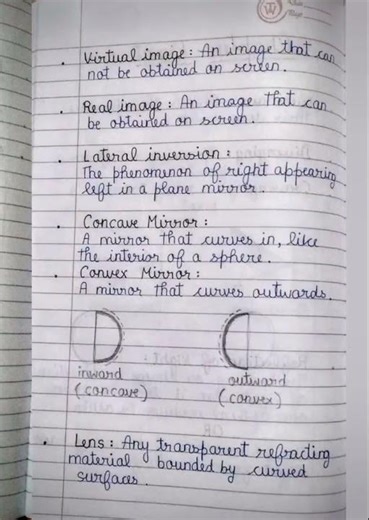 W
Virtual image: An image that can
not be obtained on screen.
Real image: An image that can
be obtained on screen.
Lateral inversion:
The phenomenon of right appearing
left in a plane mirror.
Concave Mirror:
A mirror that curves in, like
the interior of a sphere.
Convex Mirror:
A mirror that curves outwards.
inward
(concave)
outward
(convex)
Lens: Any transparent refracting
material bounded by curved
surfaces.